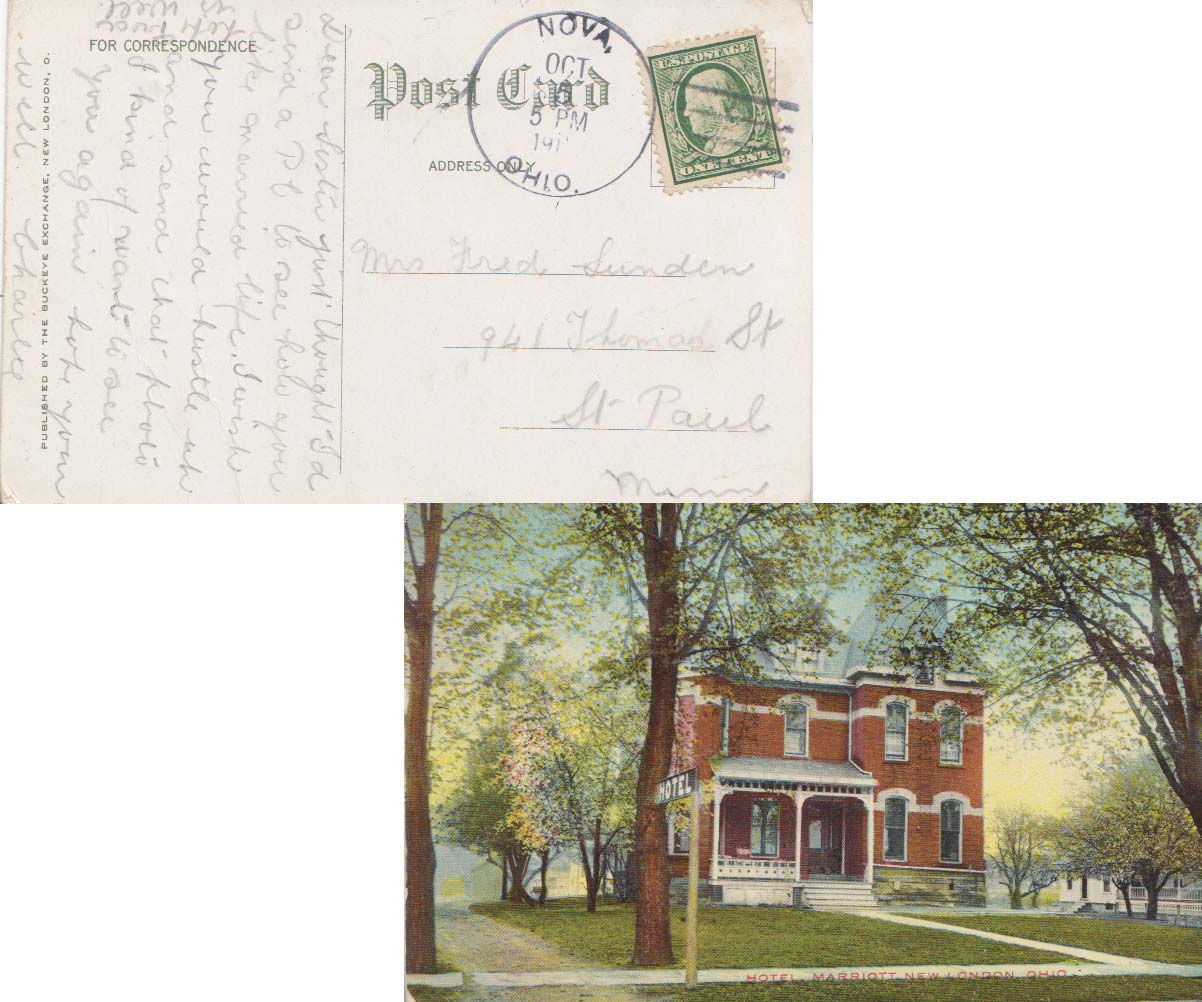 FOR CORRESPONDENCE
Post Card
ADDRESS ONLY
NOVA,
OCT
5 PM
191
OHIO.
U.S. POSTAGE
ONE CENT
Mrs Fred Sunden
941 Thomas St
St Paul
Minn
Dear Sister just thought I'd
send a PC to see how you
like married life. I wish
you would hustle up
and send that photo
I kind of want to see
you again hope your
well Charlie
PUBLISHED BY THE BUCKEYE EXCHANGE, NEW LONDON, O.
HOTEL
HOTEL, MARRIOTT NEW LONDON, OHIO.